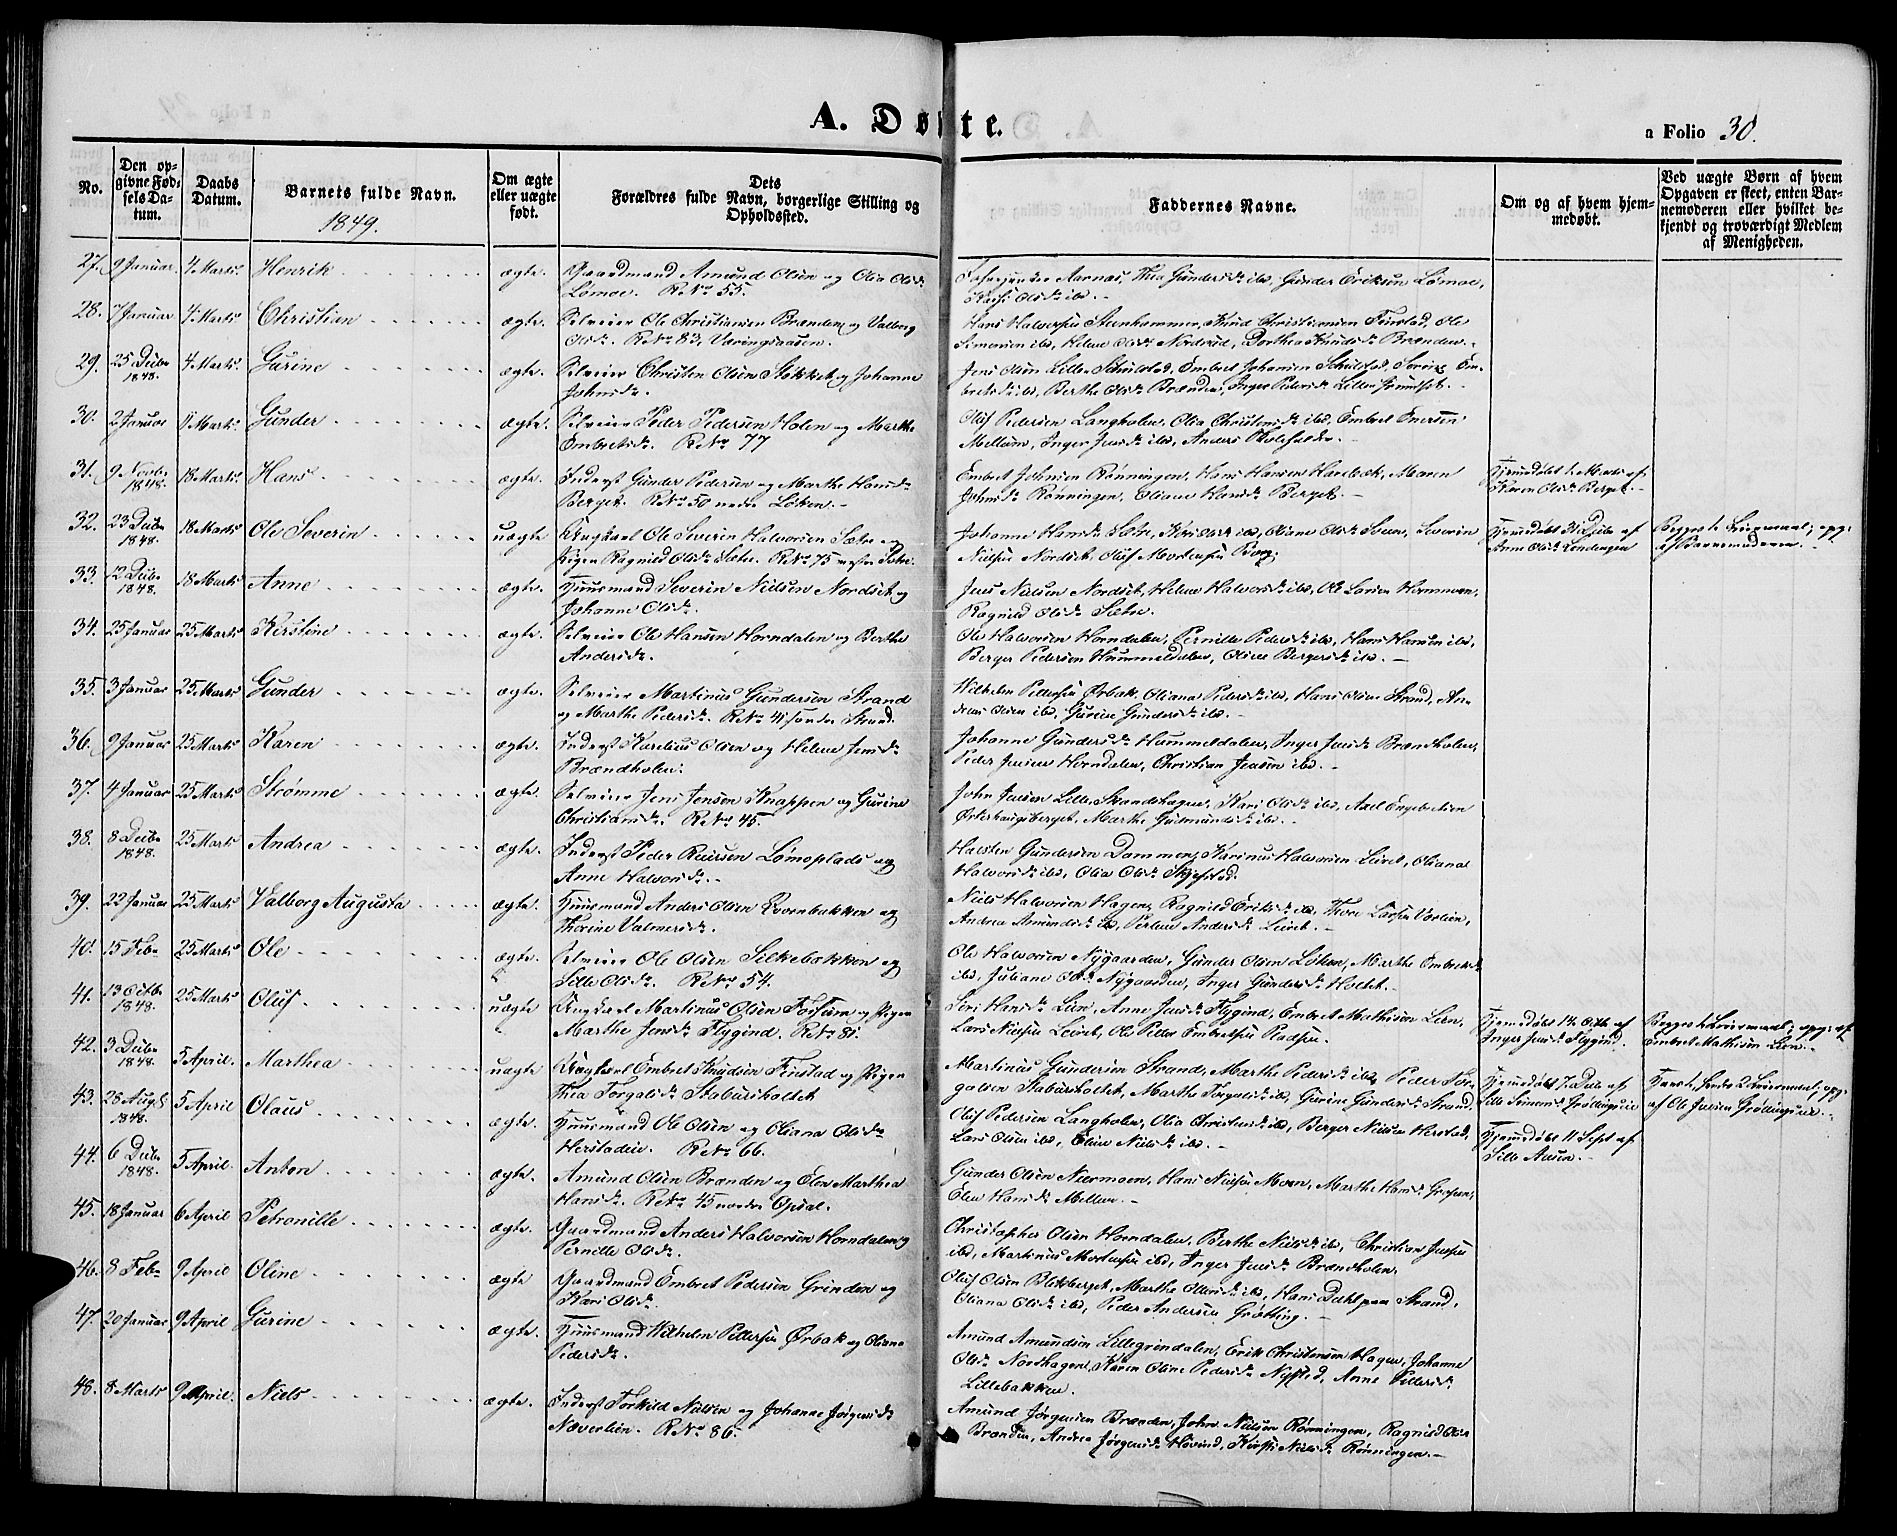 A. Døbte.
a Folio 30.
No.
Den opgivne Fødselsdatum.
Daabs Datum.
Barnets fulde Navn.
1849.
Om ægte eller uægte født.
Dets Forældres fulde Navn, borgerlige Stilling og Opholdssted.
Faddernes Navne.
Om og af hvem hjemmedøbt.
Ved uægte Børn af hvem Opgaven er skeet, enten Barnemoderen eller hvilket bekjendt og troværdigt Medlem af Menigheden.
27. 9 Januar 4 Marts Henrik ægte Gaardmand Amund Olsen og Olia Olsdr
Lømoe. RNo 55.
Aarnæs, Thea Gundersdr ibd, Gunder Eriksen Lømoe,
Olsdr ibd.
28. 7 Januar 4 Marts Christian ægte Selveier Ole Christiansen Brænden og Valborg
Olsdr. RNo 83, Væringsaasen.
Hans Halvorsen Steenhammer, Knud Christiansen Finstad, Ole
Simensen ibd, Helene Olsdr Nordrud, Dorthea Knudsdr Brænden.
29. 25 Decbr 1848. 4 Marts Gurine ægte Selveier Christen Olsen Stokket og Johanne
Johnsdr.
Jens Olsen Lille Skulstad, Embret Johansen Skulstad, Sørine Embretsdr ibd, Berthe Olsdr Brænden, Inger Pedersdr Lille Grundset.
30. 2 Januar 11 Marts Gunder ægte Selveier Peder Pedersen Holen og Marthe
Embretsdr. RNo 77
Oluf Pedersen Langholen, Olia Christensdr ibd, Embret Enersen
Mellum, Inger Jensdr ibd, Anders
31. 9 Novbr 1848. 18 Marts Hans ægte Inderst Gunder Pedersen og Marthe Hansdr
Berget. RNo 50 nedre Løken.
Embret Johnsen Rønningen, Hans Hansen Harebæk, Maren
Johnsdr Rønningen, Oliane Hansdr Berget.
Hjemmedøbt 1 Marts af
Karen Olsdr Berget.
32. 23 Decbr 1848. 18 Marts Ole Severin uægte Ungkarl Ole Severin Halvorsen Sætre og
Pigen Ragnild Olsdr Sætre. RNo 75 Sætre.
Johanne Hansdr Sætre, Kari Olsdr ibd, Oliane Olsdr Steen, Severin
Nielsen Nordset, Oluf Mortensen Berg.
Hjemmedøbt 31 Decbr af
Anne Olsdr Lendengen
Begges 1ste Leiermaal; opg:
af Barnemoderen.
33. 12 Decbr 1848. 18 Marts Anne ægte Huusmand Severin Nielsen Nordset og
Johanne Olsdr.
Jens Nielsen Nordset, Helene Halvorsdr ibd, Ole Larsen Hornmoen,
Ragnild Olsdr Sætre.
34. 25 Januar 25 Marts Kirstine ægte Selveier Ole Hansen Horndalen og Berthe
Andersdr.
Ole Halvorsen Horndalen, Pernille Pedersdr ibd, Hans Hansen ibd,
Berger Pedersen Hummeldalen, Oline Bergersdr ibd.
35. 3 Januar 25 Marts Gunder ægte Selveier Martinus Gundersen Strand
og Marthe Pedersdr. RNo 41 søndre Strand.
Wilhelm Pettersen Ørbæk, Oliana Pedersdr ibd, Hans Olsen Strand, Andreas Olsen ibd, Gurine Gundersdr ibd.
36. 9 Januar 25 Marts Karen ægte Inderst Karelius Olsen og Helene Jensdr
Brændholen.
Johanne Gundersdr Hummeldalen, Inger Jensdr Brændholen,
Peder Jensen Horndalen, Christian Jensen ibd.
37. 4 Januar 25 Marts Strømme ægte Selveier Jens Jensen Knappen og Gurine
Christiansdr. RNo 45.
John Jensen Lille Skandshagen, Kari Olsdr ibd, Axel Engebretsen
Østerhaugsberget, Marthe Gudmundsdr ibd.
38. 8 Decbr 1848. 25 Marts Andrea ægte Inderst Peder Lømoplads og
Anne Halvorsdr.
Halsten Gundersen Dammen, Karinus Halvorsen Leiret, Oliana
Halvorsdr ibd, Olia Olsdr Skjefstad.
39. 22 Januar 25 Marts Valborg Augusta ægte Huusmand Anders Olsen Qvernbakken og
Thorine Valmersdr.
Niels Halvorsen Hagen, Ragnild Eriksdr ibd, Thore Larsen
Andrea Amundsdr ibd, Andersdr Leiret.
40. 15 Febr 25 Marts Ole ægte Selveier Ole Olsen Silkebakken og
Sille Olsdr. RNo 54.
Ole Halvorsen Nygaarden, Gunder Olsen Løken, Marthe Embretsdr
ibd, Juliane Olsdr Nygaarden, Inger Gundersdr Holtet.
41. 13 Octbr 1848. 25 Marts Oluf uægte Ungkarl Martinus Olsen Fossum og Pigen
Marthe Jensdr Flygind. RNo 81.
Siri Hansdr Lien, Anne Jensdr Flygind, Embret Mathisen Lien,
Lars Nielsen Leiret, Ole Peder Embretsen
Hjemmedøbt 14 Octbr af
Inger Jensdr Flygind.
Begges 1 Leiermaal; opg: af
Embret Mathisen Lien.
42. 3 Decbr 1848. 5 April. Marthea uægte Ungkarl Embret Knudsen Finstad og Pigen
Thea Torgalsdr Stabursholtet
Martinus Gundersen Strand, Marthe Pedersdr ibd, Peder Torgalsen Stabursholtet, Marthe Torgalsdr ibd, Gurine Gundersdr Strand.
Hjemmedøbt 7 Decbr af
Sille Simensdr Grødingsrud
Hans 1, hendes 2 Leiermaal; opg:
af Ole Jensen Grødingsrud.
43. 28 Aug. 1848. 5 April Olaus ægte Huusmand Ole Olsen og Oliana Olsdr
Herstadeie. RNo 66.
Oluf Pedersen Langholen, Olia Christensdr ibd, Berger Nielsen Herstad,
Lars Olsen ibd, Eline Nielsdr ibd.
Hjemmedøbt 11 Sept af
Sille Aasen.
44. 6 Decbr 1848. 5 April. Anton ægte Amund Olsen Brænden og Elen Marthea
Hansdr. RNo 45 nordre Opsal.
Gunder Olsen Nærmoen, Hans Nielsen Moen, Marthe Hansdr
Elen Hansdr Mellem.
45. 18 Januar 6 April Petronille ægte Gaardmand Anders Halvorsen Horndalen og
Pernille Olsdr.
Christopher Olsen Horndalen, Berthe Nielsdr ibd, Christian Jensen
ibd, Martinus Mortensen ibd, Inger Jensdr Brændholen.
46. 8 Febr 9 April Oline ægte Gaardmand Embret Pedersen Grinden og
Kari Olsdr.
Oluf Olsen Blekberget, Marthe Olsdr ibd, Hans Strand,
Oliana Olsdr ibd, Peder Andersen Grøtting.
47. 20 Januar 9 April Gurine ægte Huusmand Wilhelm Pettersen Ørbæk og Oliana
Pedersdr.
Amund Amundsen Lillegrindalen, Erik Christensen Hagen, Johanne
Olsdr Nordhagen, Karen Oline Pedersdr Nysted, Anne Pedersdr
Lillebakken.
48. 8 Marts 9 April. Niels ægte Inderst Torkild Nielsen og Johanne Jørgensdr
Næverlien. RNo 86.
Amund Jørgensen Brænden, John Nielsen Rønningen, Ragnild Olsdr
Brænden, Andrea Jørgensdr Hovind, Kirsti Nielsdr Rønningen.